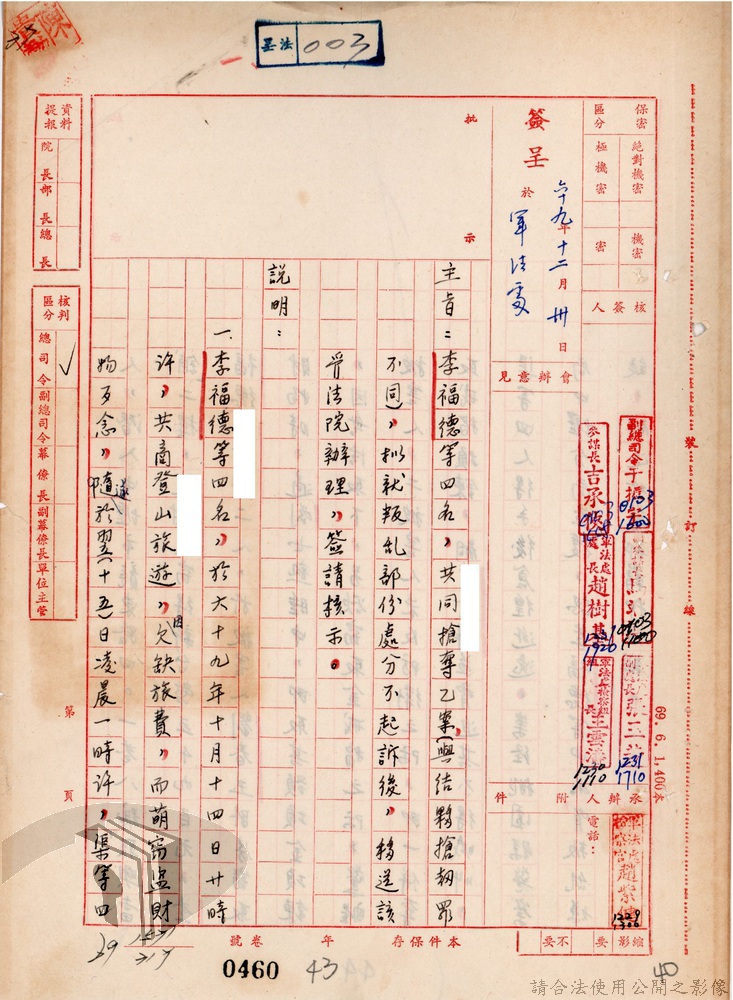 罢法 003
保密區分
絕對機密
極機密
機密
密
簽呈
於
軍法處
六十九年十二月卅日
批
示
核簽人
會辦意見
副總司令于
參謀長吉承俠
0103
軍法處處長趙樹
1231
1710
承辦人
附件
電話：
主旨：李福德等四名，共同搶奪乙案（與結夥搶劫罪
不同），擬就叛乱部份處分不起訴後，移送該
管法院辦理，簽請核示。
說明：
一、李福德等四名，於六十九年十月十四日廿時
許，共商登山旅遊，因欠缺旅費，而萌竊盜財
物歹念，遂隨於翌（十五）日凌晨一時許，渠等四
資料提報
院長
部長
總長
核判區分
總司令
副總司令
幕僚長
副幕僚長
單位主管
第
頁
裝
訂
線
69.6.1.400本
縮影
要
不要
本件保存
年
卷號
0460
43
40
請合法使用公開之影像